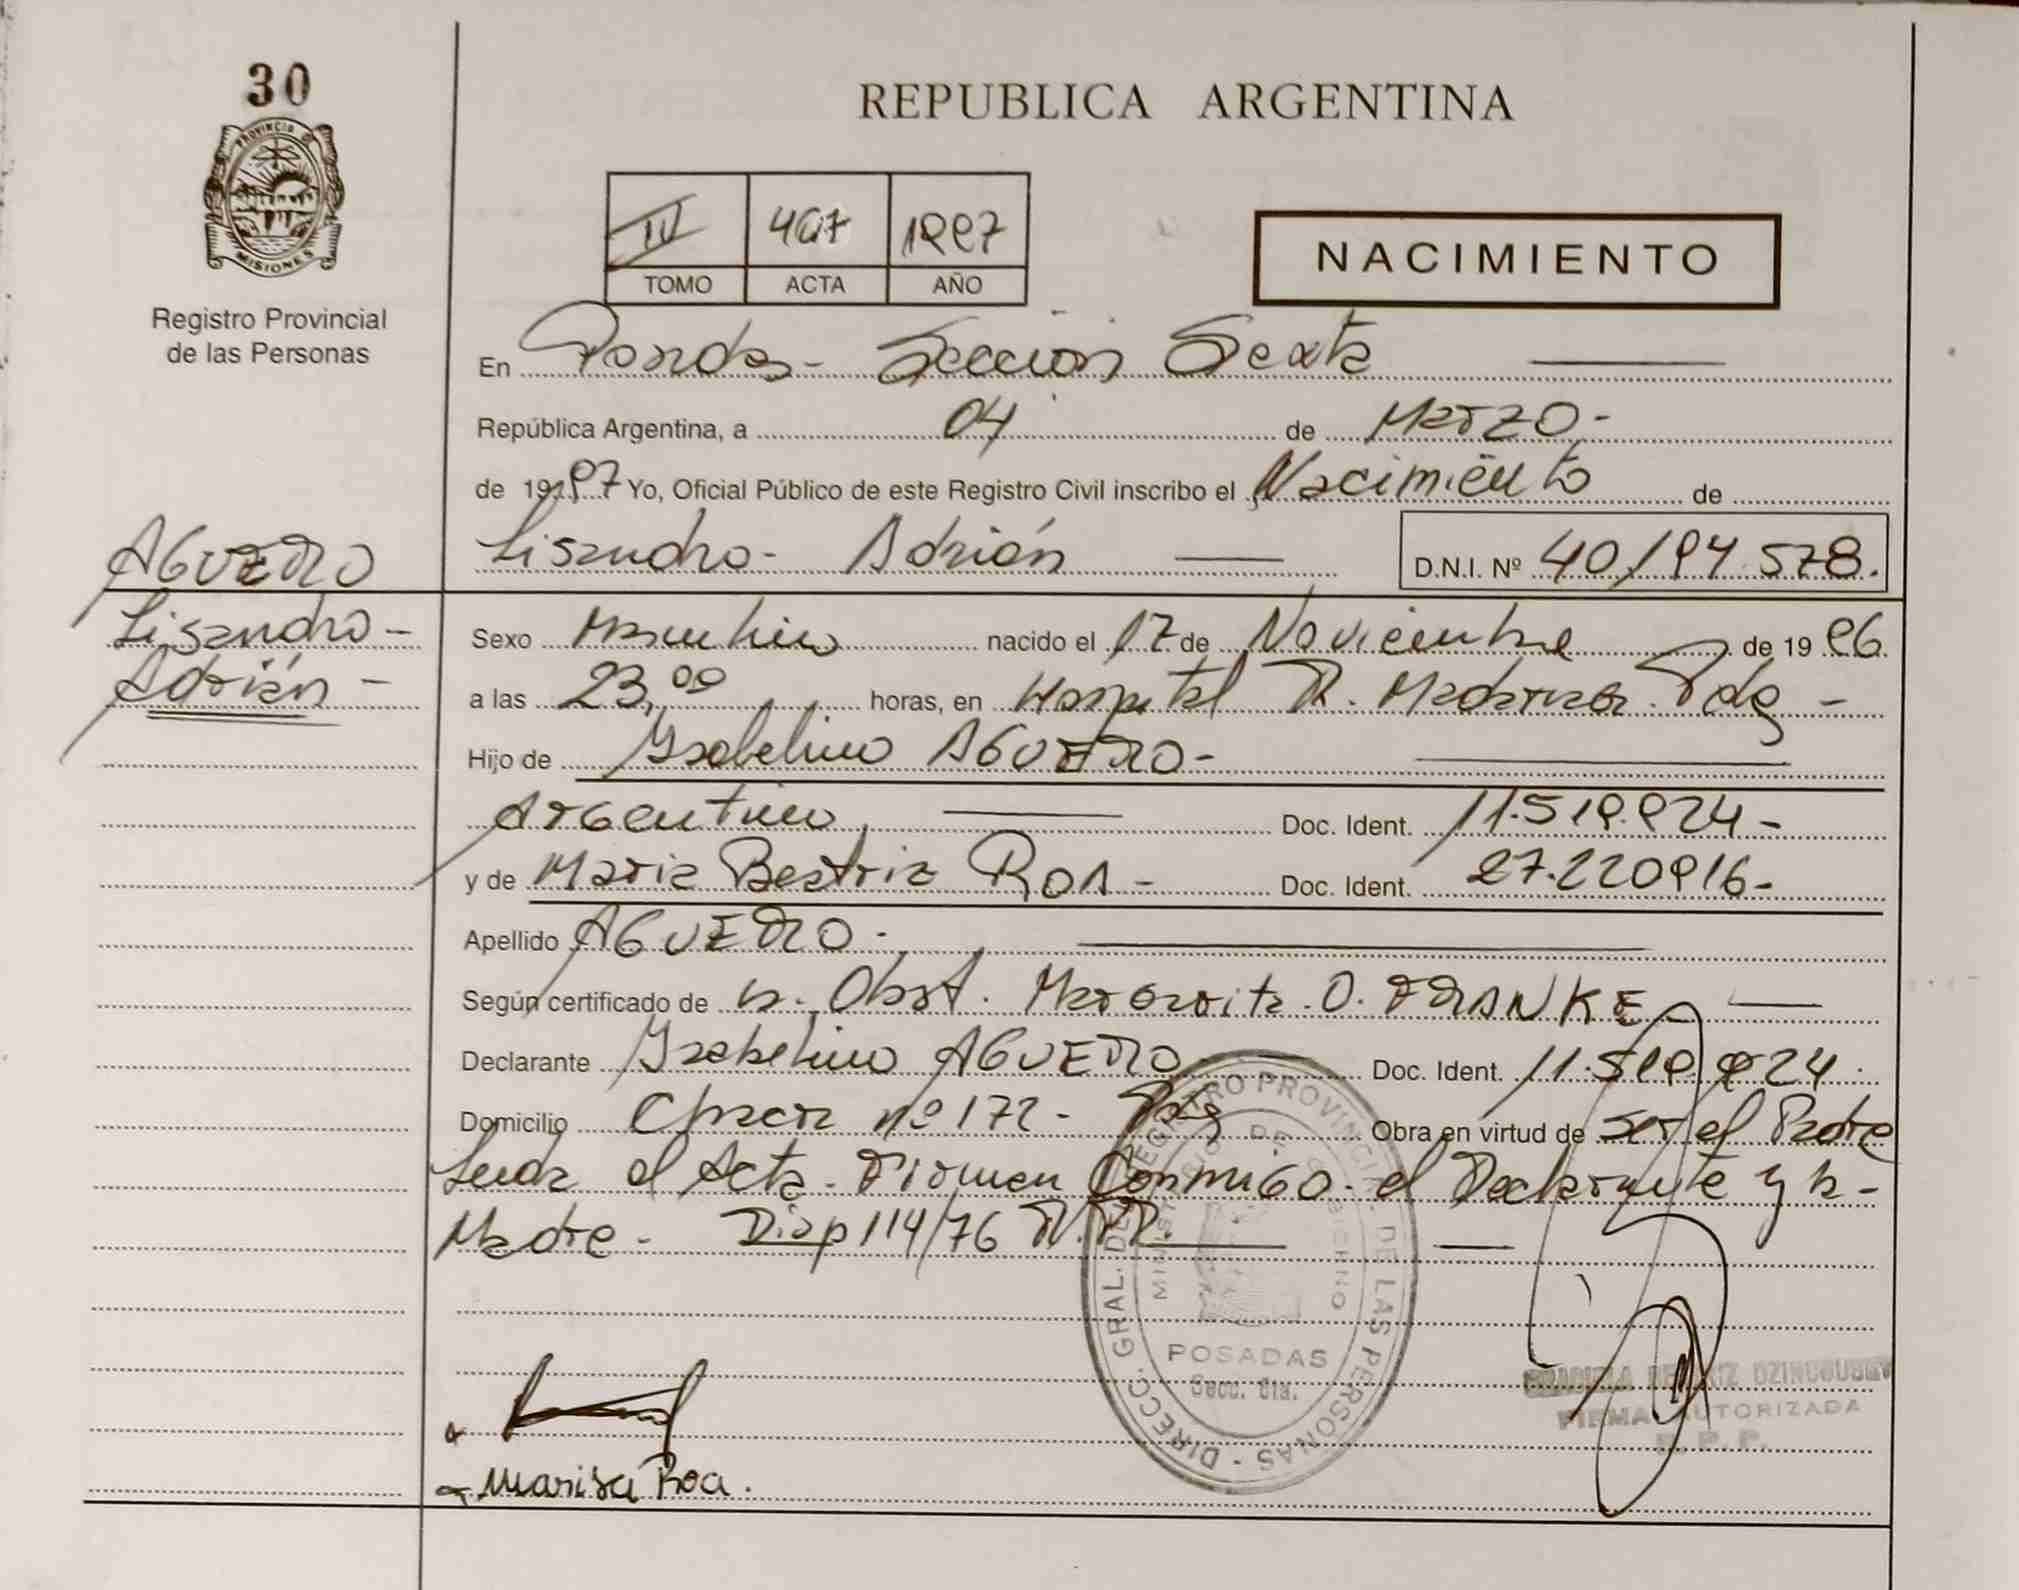 30
PROVINCIA DE
MISIONES
Registro Provincial
de las Personas
REPUBLICA ARGENTINA
IV 467 1997
TOMO ACTA AÑO
NACIMIENTO
En Posadas - Sección Sexta
República Argentina, a 04 de Marzo -
de 1997 Yo, Oficial Público de este Registro Civil inscribo el Nacimiento de
AGUERO
Lisandro - Adrián D.N.I. Nº 40/194.578.
Lisandro -
Adrián -
Sexo Masculino nacido el 17 de Noviembre de 1996
a las 23,00 horas, en Hospital R. Madariaga. Pdas -
Hijo de Ysabelino AGUERO -
Argentino Doc. Ident. 11.519.924 -
y de Maria Beatriz ROA - Doc. Ident. 27.220916 -
Apellido AGUERO -
Según certificado de la Obst. Margarita O. FRANKE
Declarante Ysabelino AGUERO Doc. Ident. 11.519.924.
Domicilio Chacra nº 172 - Pdas Obra en virtud de ser el Padre
Leída el Acta - Firman Conmigo - el Declarante y la -
Madre - Disp 114/76 R.P.P.
DIRECC. GRAL. DEL REGISTRO PROVINCIAL DE LAS PERSONAS
MINISTERIO DE GOBIERNO
POSADAS
Secc. 6ta.
FIRMA AUTORIZADA
R. P. P.
Marisa Roa.